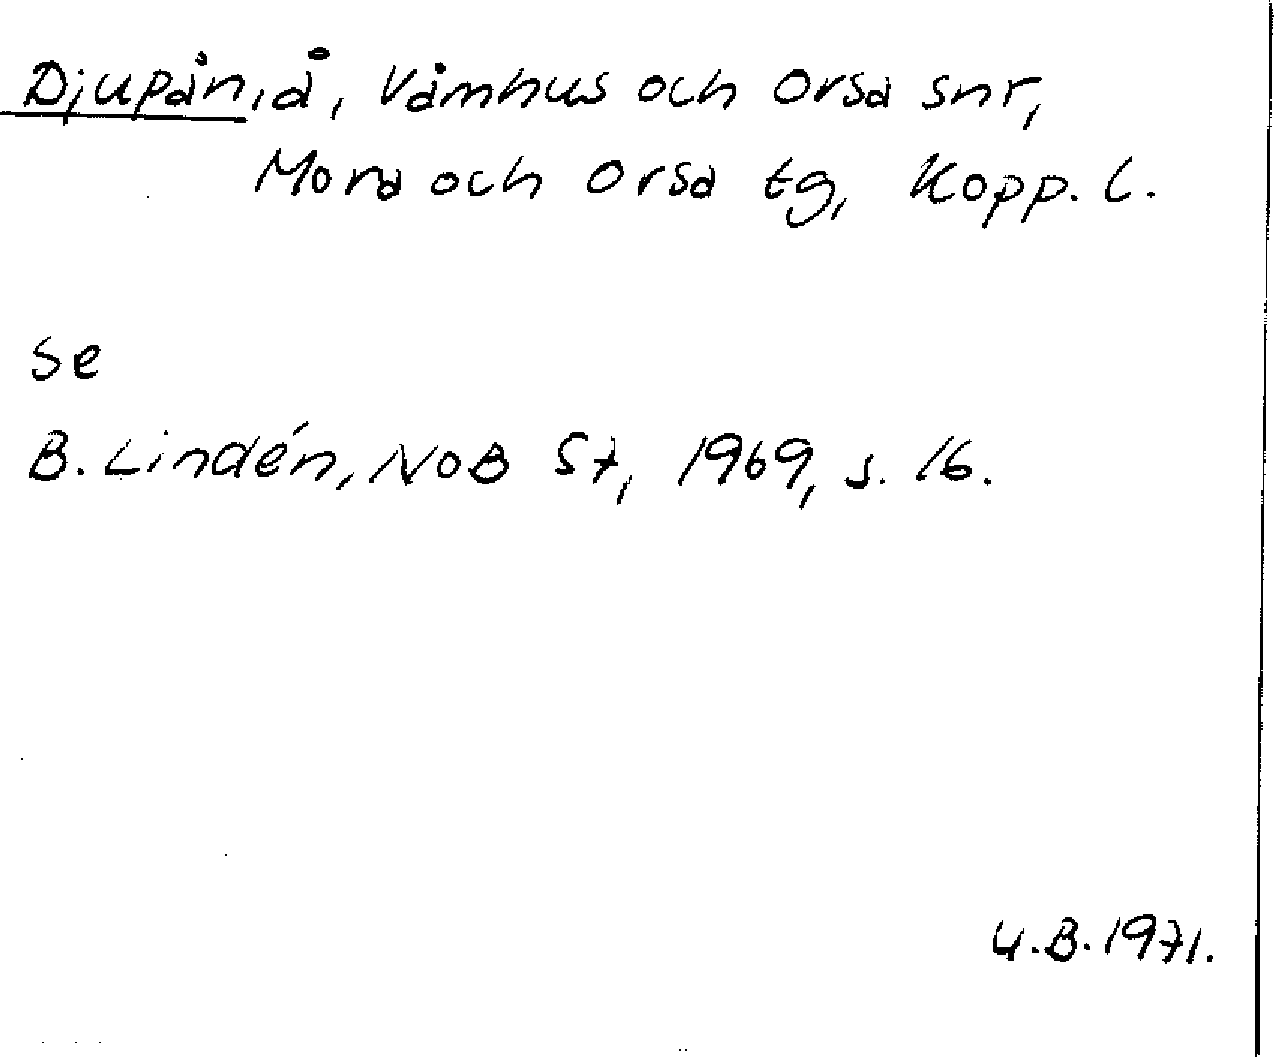 Djupån, å, Våmhus och Orsa snr,
Mora och Orsa tg, Kopp. l.
se
B. Lindén, NoB 57, 1969, s. 16.
U.B. 1971.